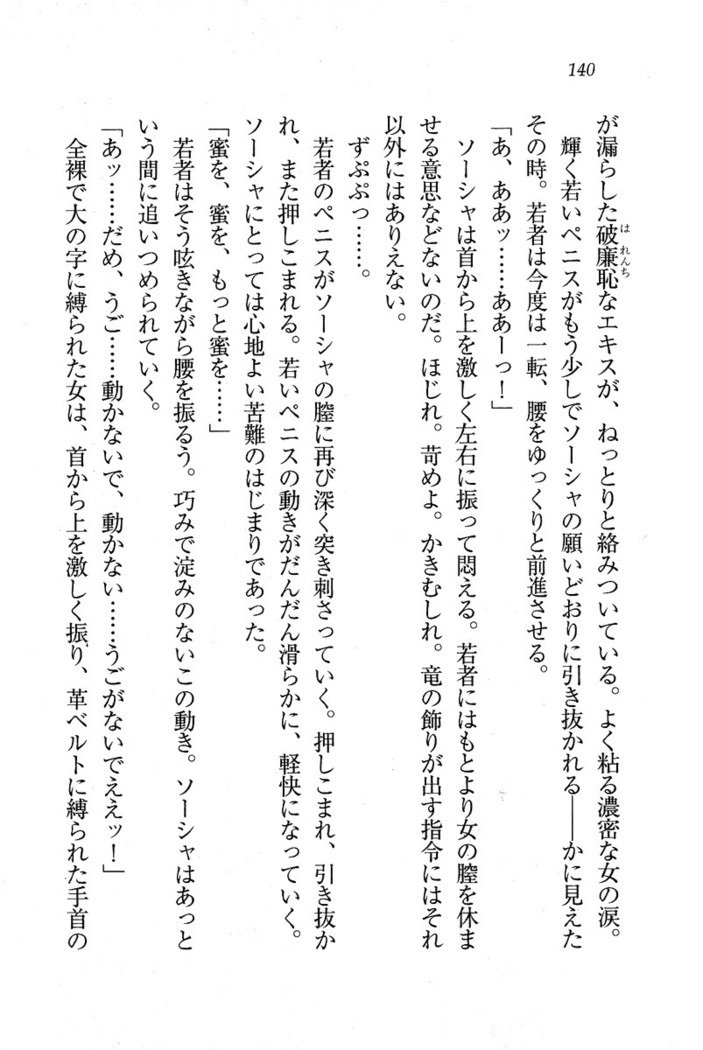 140
が漏らした破廉恥なエキスが、ねっとりと絡みついている。よく粘る濃密な女の涙。
はれんち
輝く若いペニスがもう少しでソーシャの願いどおりに引き抜かれる――かに見えた
その時。若者は今度は一転、腰をゆっくりと前進させる。
「あ、ああッ……ああーっ！」
ソーシャは首から上を激しく左右に振って悶える。若者にはもとより女の膣を休ま
せる意思などないのだ。ほじれ。苛めよ。かきむしれ。竜の飾りが出す指令にはそれ
以外にはありえない。
ずぷぷっ……。
若者のペニスがソーシャの膣に再び深く突き刺さっていく。押しこまれ、引き抜か
れ、また押しこまれる。若いペニスの動きがだんだん滑らかに、軽快になっていく。
ソーシャにとっては心地よい苦難のはじまりであった。
「蜜を、蜜を、もっと蜜を……」
若者はそう呟きながら腰を振るう。巧みで淀みのないこの動き。ソーシャはあっと
いう間に追いつめられていく。
「あッ……だめ、うご……動かないで、動かない……うごがないでえぇッ！」
全裸で大の字に縛られた女は、首から上を激しく振り、革ベルトに縛られた手首の